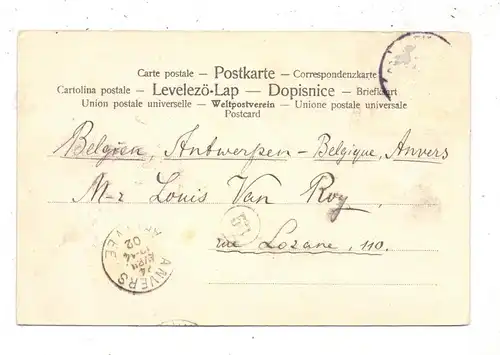 Carte postale — Postkarte — Correspondenzkarte
Cartolina postale — Levelező-Lap — Dopisnice — Briefkaart
Union postale universelle — Weltpostverein — Unione postale universale
Postcard
Belgien, Antwerpen – Belgique, Anvers
M-r Louis Van Roy
rue Lozane, 110.
ANVERS
ARRIVÉE
02